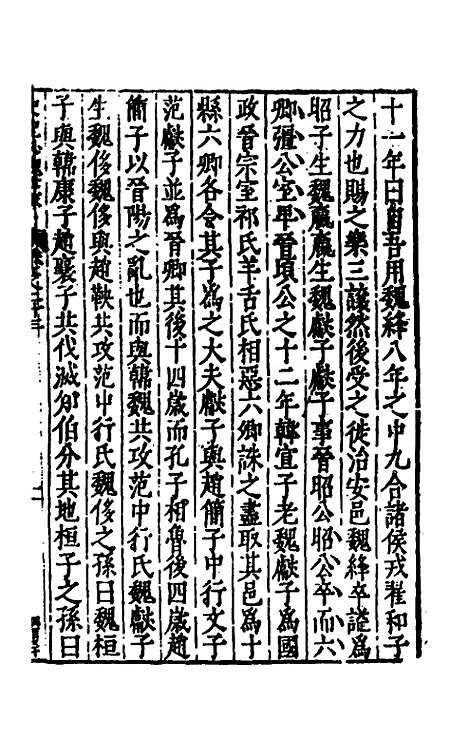 十一年曰自吾用魏絳八年之中九合諸侯戎翟和子
之力也賜之樂三讓然後受之徙治安邑魏絳卒諡爲
昭子生魏嬴嬴生魏獻子獻子事晉昭公昭公卒而六
卿彊公室卑晉頃公之十二年韓宣子老魏獻子爲國
政晉宗室祁氏羊舌氏相惡六卿誅之盡取其邑爲十
縣六卿各令其子爲之大夫獻子與趙簡子中行文子
范獻子並爲晉卿其後十四歲而孔子相魯後四歲趙
簡子以晉陽之亂也而與韓魏共攻范中行氏魏獻子
生魏侈魏侈與趙鞅共攻范中行氏魏侈之孫曰魏桓
子與韓康子趙襄子共伐滅知伯分其地桓子之孫曰